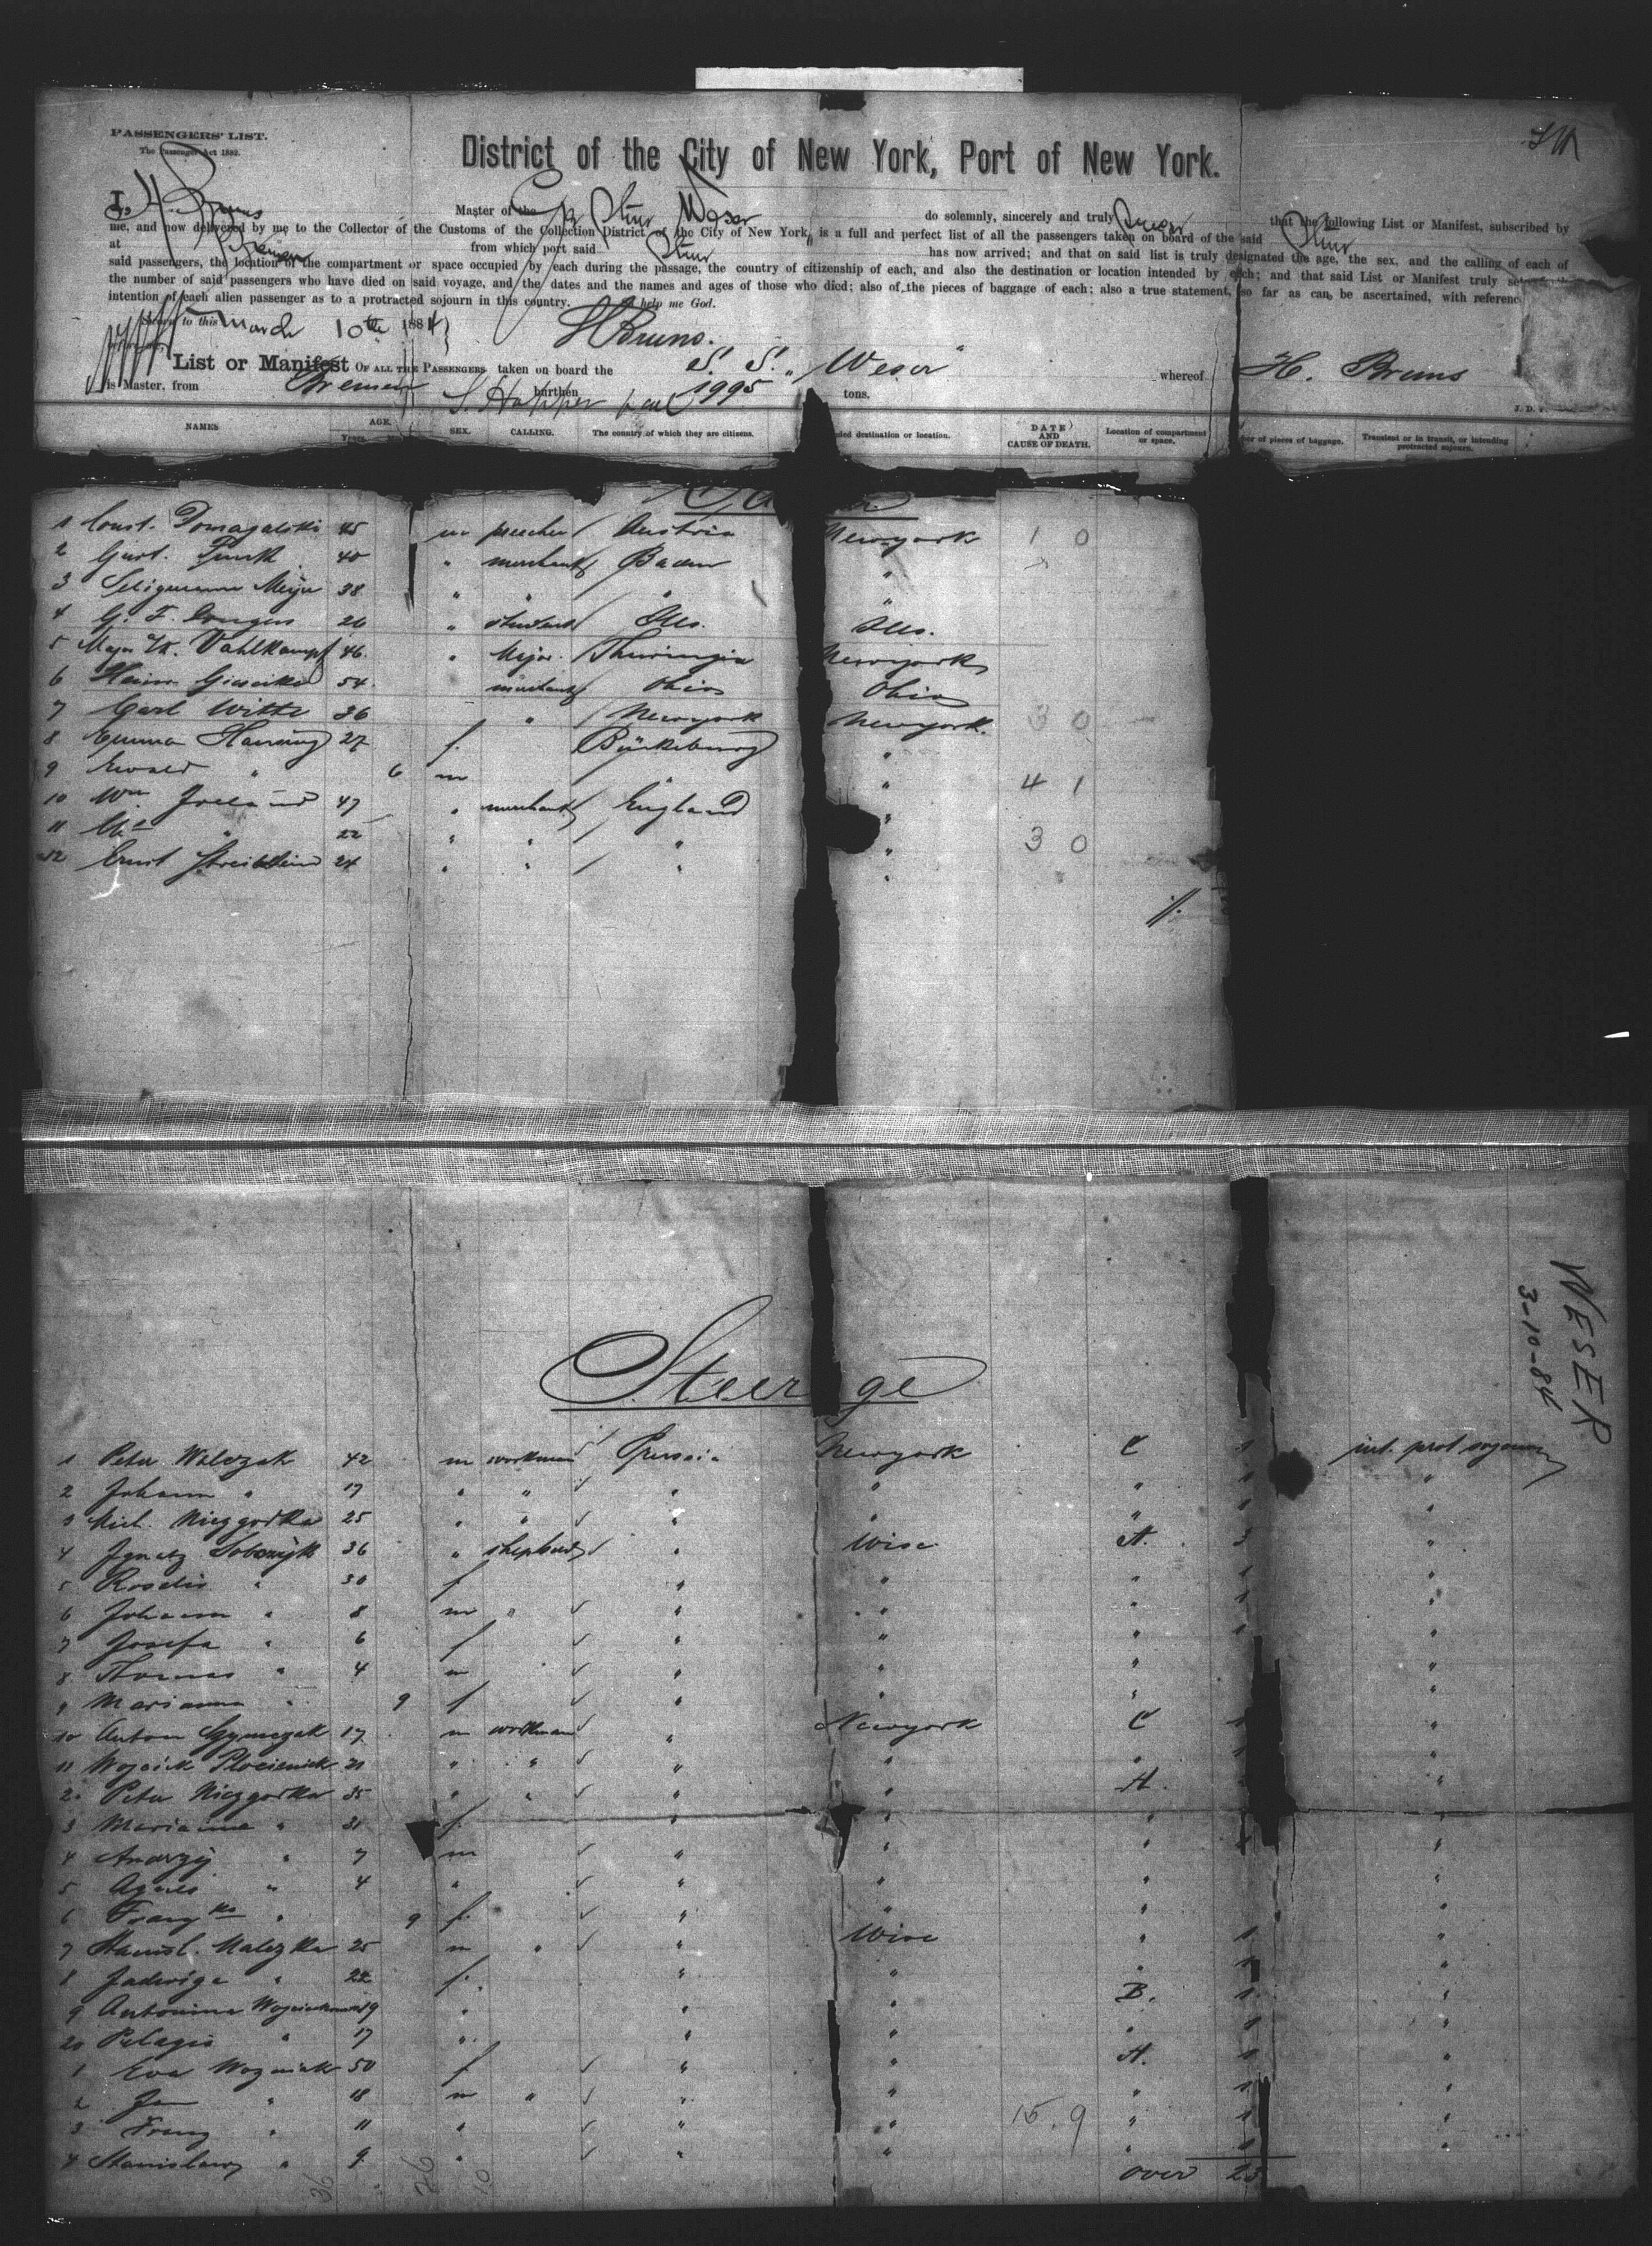 PASSENGERS' LIST.
The Passenger Act 1882.
District of the City of New York, Port of New York.
I, H. Bruns Master of the Str Weser do solemnly, sincerely and truly swear that the following List or Manifest, subscribed by
me, and now delivered by me to the Collector of the Customs of the Collection District of the City of New York, is a full and perfect list of all the passengers taken on board of the said Stmr
at Bremen from which port said Stmr has now arrived; and that on said list is truly designated the age, the sex, and the calling of each of
said passengers, the location of the compartment or space occupied by each during the passage, the country of citizenship of each, and also the destination or location intended by each; and that said List or Manifest truly
the number of said passengers who have died on said voyage, and the dates and the names and ages of those who died; also of the pieces of baggage of each; also a true statement, so far as can be ascertained, with
intention of each alien passenger as to a protracted sojourn in this country. help me God.
Sworn to this March 10th 1884
H Bruns.
List or Manifest OF ALL THE PASSENGERS taken on board the S. S. "Weser" whereof H. Bruns
is Master, from Bremen burthen 1995 tons.
NAMES AGE. Years. SEX. CALLING. The country of which they are citizens. destination or location. DATE AND CAUSE OF DEATH. Location of compartment or space. of pieces of baggage. Transient or in transit, or intending protracted sojourn.
1 Const. Domagalski 45 m preecher Austria Newyork 1 0
2 Gust. Funk 40 " merchant Baden "
3 Seligmann Meyer 38 " " " "
4 G. F. 26 " student Ills. Ills.
5 Major W. Vahlkampf 46. " Major. Thuringia Newyork
6 Heinr. Giesecke 54. merchant Ohio Ohio
7 Carl Witte 36 " Newyork Newyork. 3 0
8 Emma Haming 27 f. Bückeburg "
9 Ewald " 6 m " " 4 1
10 Wm Ireland 47 " merchant England "
11 " 22 " " " " 3 0
12 Ernst 24 " " " "
WESER
3-10-84
Steerage
1 Peter Walczak 42 m workman Prussia Newyork C 1 int. prot sojourn
2 Johann " 17 " " " " " 1 "
3 Mich. Niezgodka 25 " " " " " 1 "
4 Ignatz Sobczyk 36 " shepherd " Wisc. A. 3 "
5 Rosalie " 30 f " " " 1 "
6 Johann " 8 m " " " " 1 "
7 Josefa " 6 f " " " 1 "
8 Thomas " 4 m " " " "
9 Marianna " 9 f " " " "
10 Anton Szymczak 17 m workman " Newyork C 1 "
11 Wojciek Plocienick 21 " " " " " 1 "
2 Peter Niezgodka 35 " " " " A. "
3 Marianna " 31 f. " " " "
4 Andrzej " 7 m " " " 1 "
5 Agnes " 4 " " " " "
6 Franzka " 9 f. " " " "
7 Stanisl. Malezka 25 m " " Wisc " 1 "
8 Jadwiga " 22 f. " " " 1 "
9 Antonina 19 " " " B. 1 "
20 Pelagia " 17 " " " " 1 "
1 Eva Wozniak 50 f " " A. 1 "
2 Jan " 18 m " " " " 1 "
3 Franz " 11 " " " 15. 9 " 1 "
4 Stanislaw " 9 " " " " 1 "
over 23
36 26 10